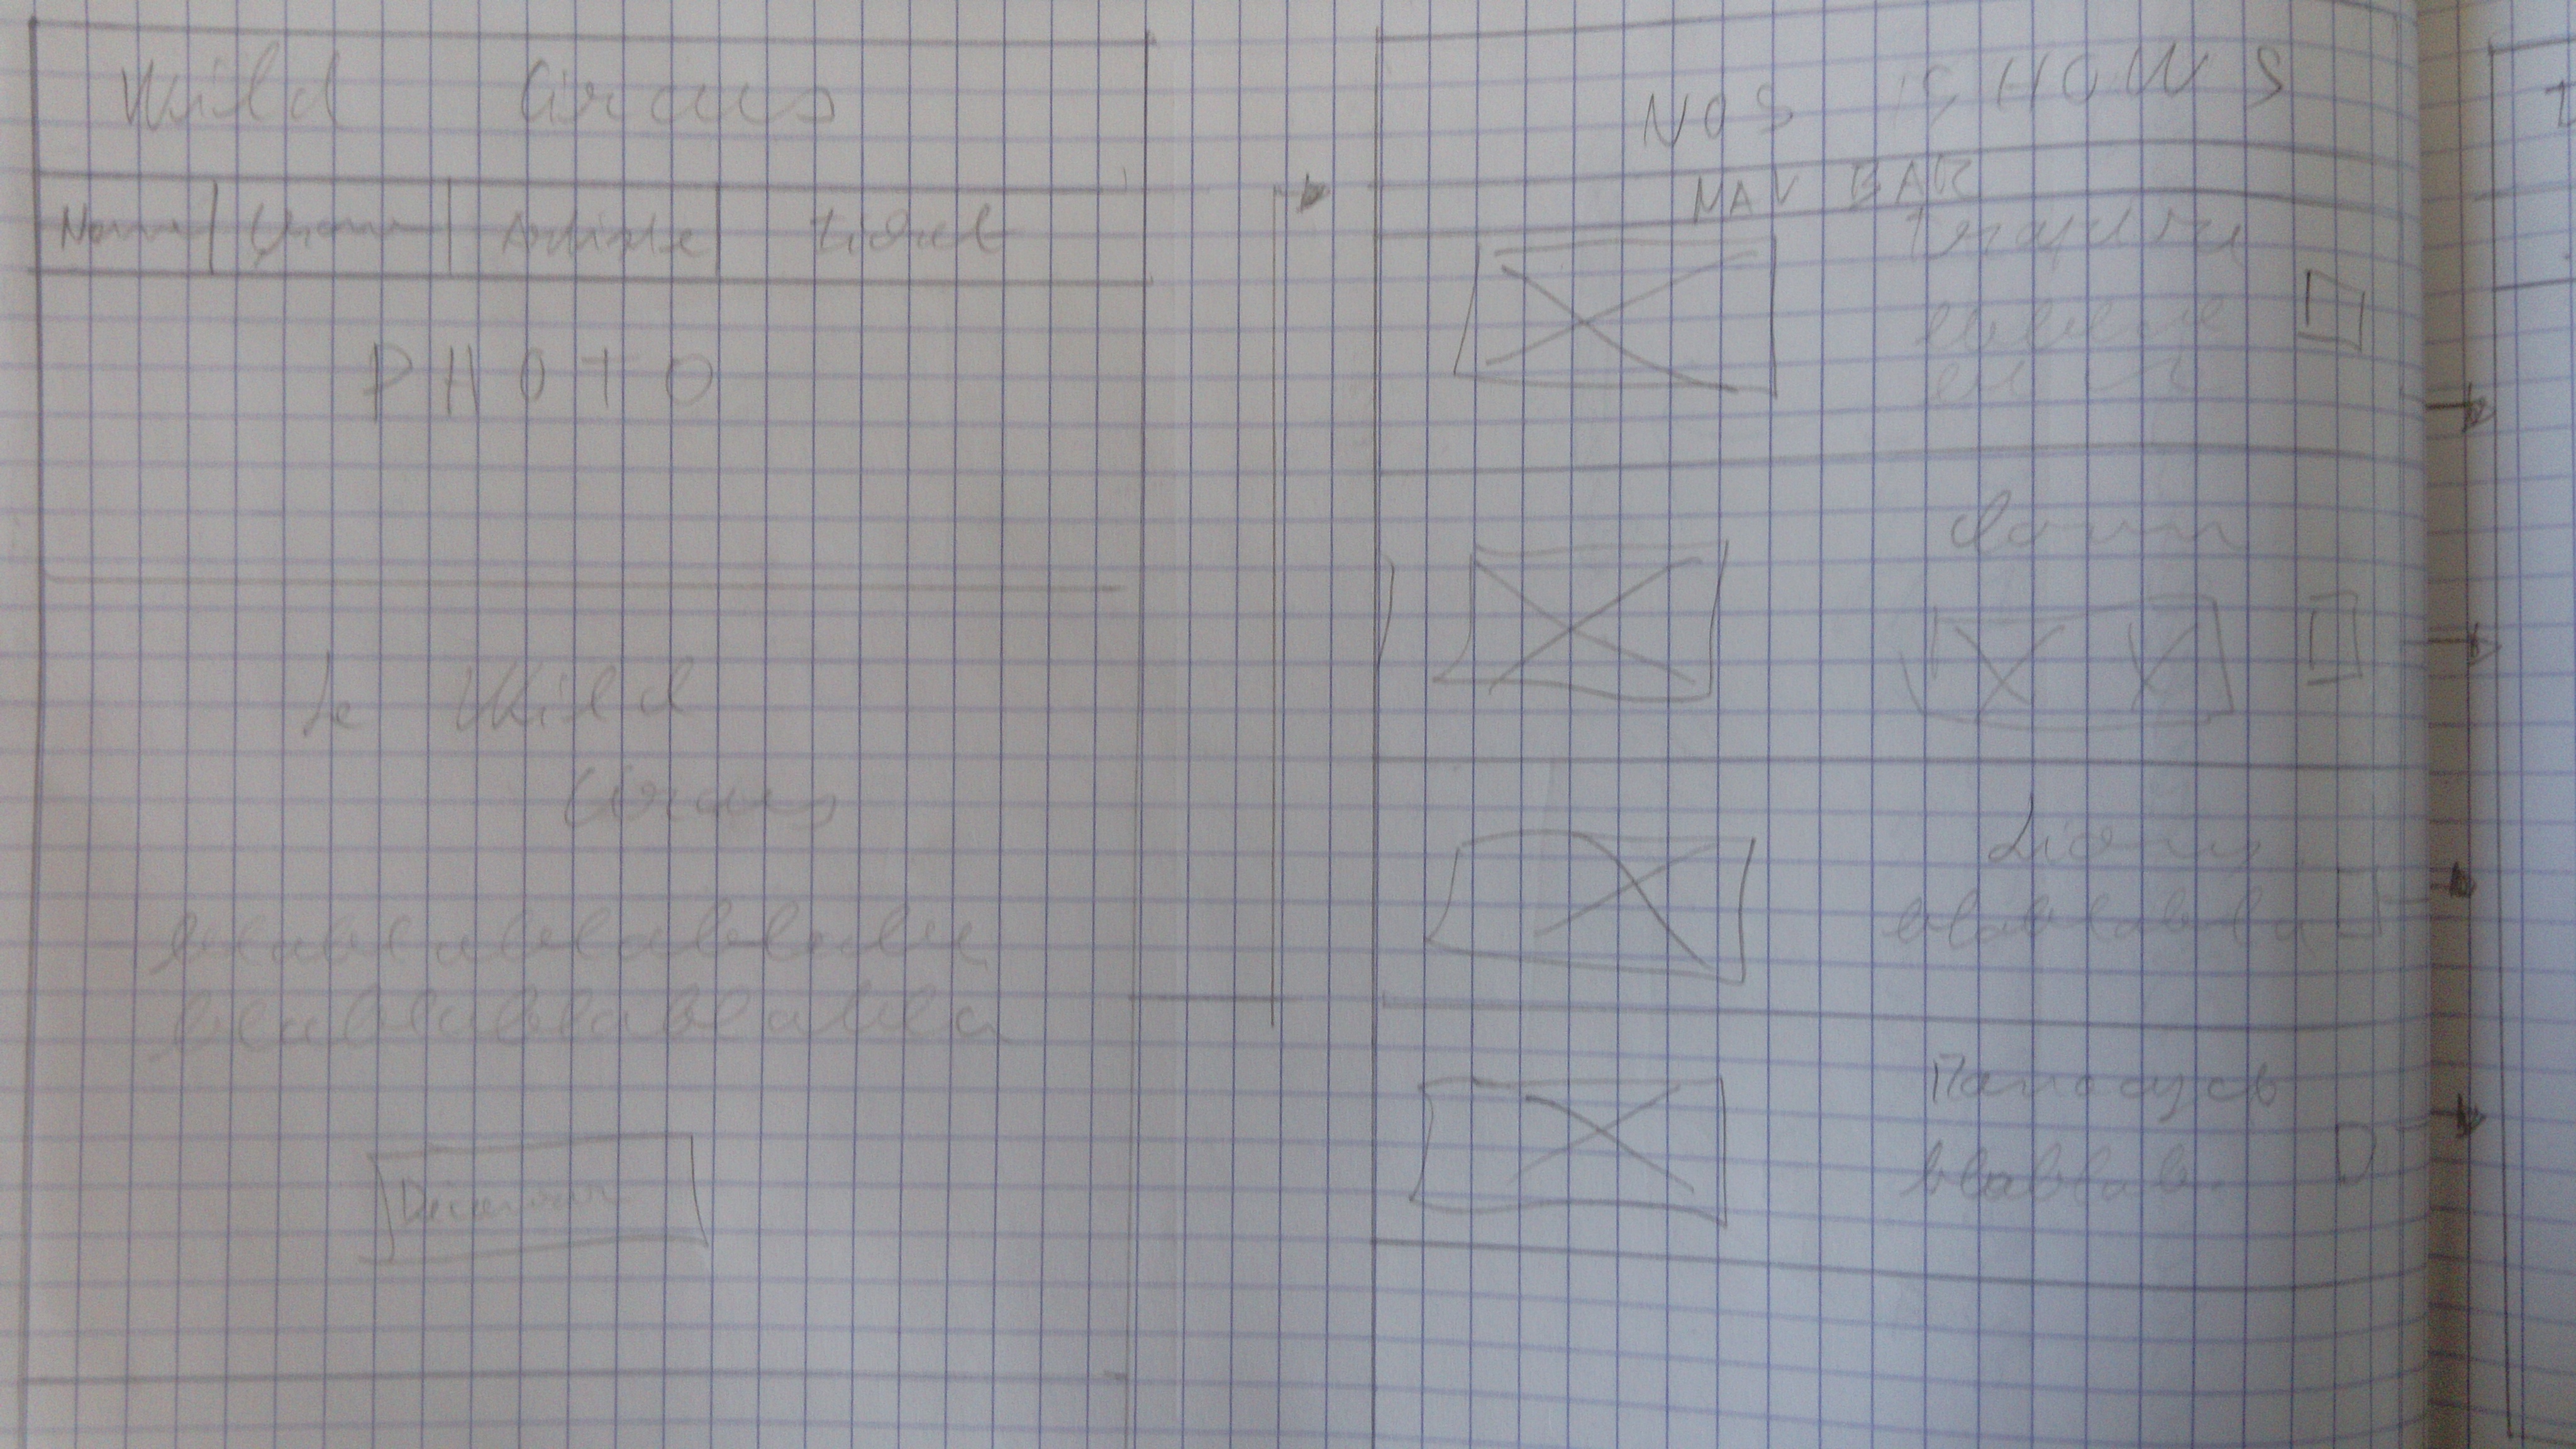 Wild Circus
Artiste ticket
PHOTO
Le Wild
Circus
blablablablablabla
blablablablablabla
NOS SHOWS
NAV BAR
Trapèze
Clown
Lions
blablablabla
blablab.